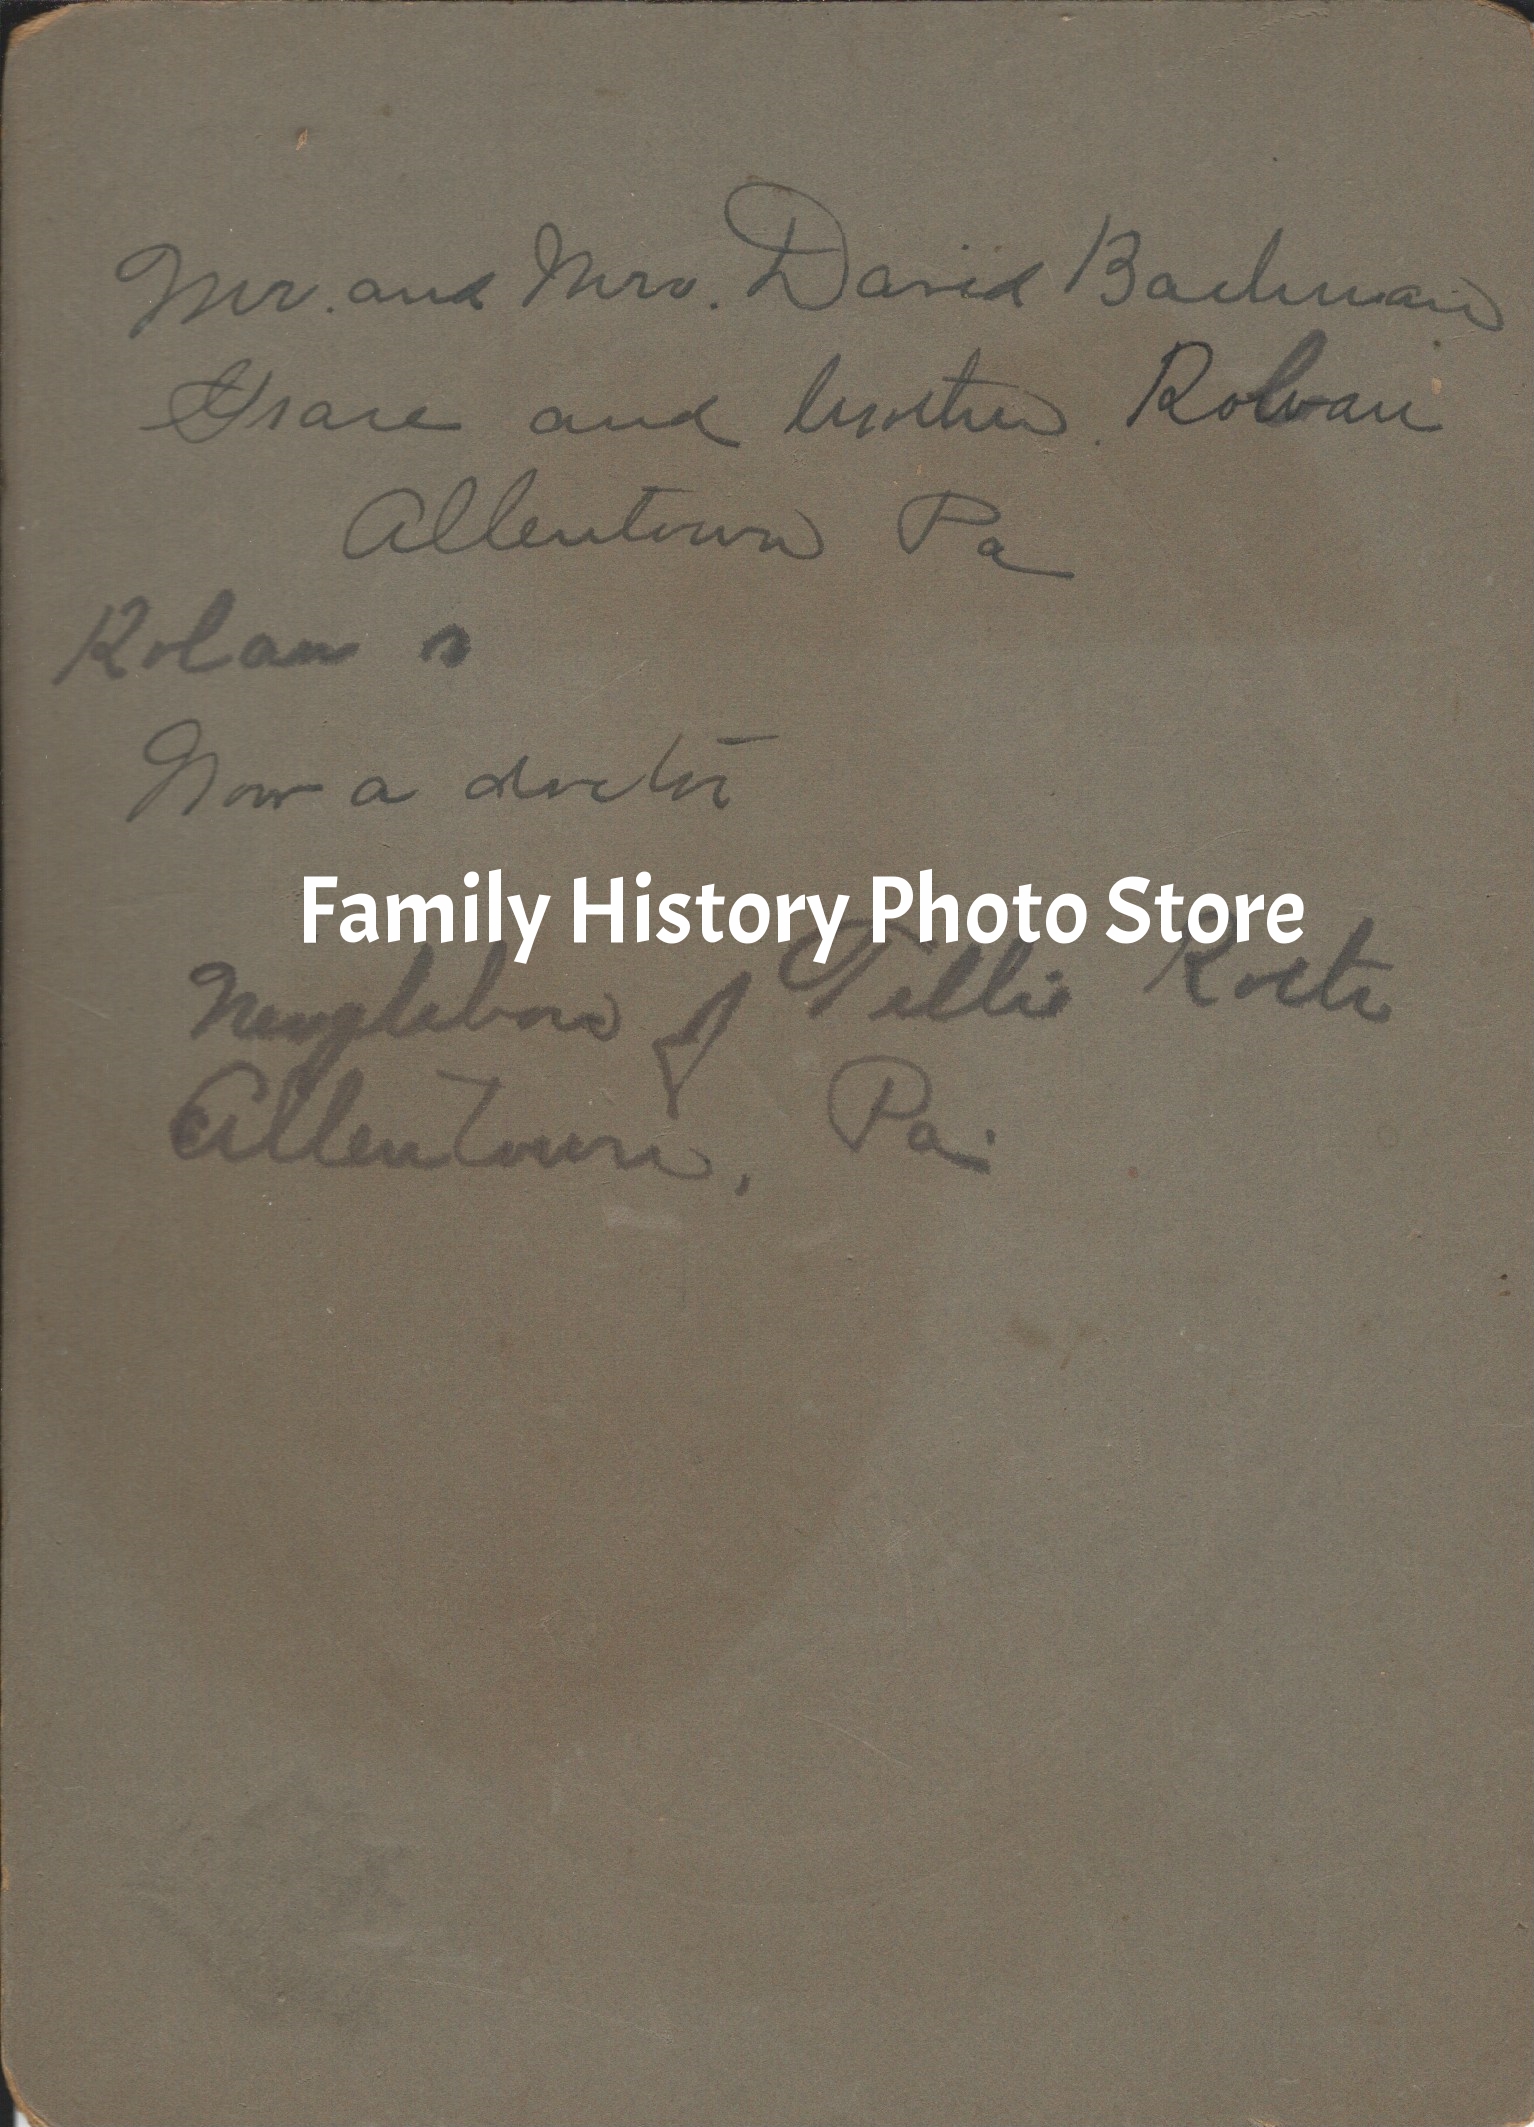 Mr. and Mrs. David Bachman
Grace and brother Rolvan
Allentown Pa
Rolan
Now a doctor
Family History Photo Store
Neighbors of Tillie
Allentown, Pa.